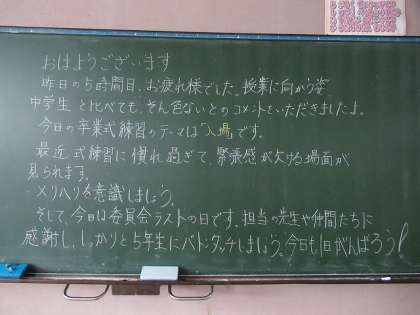 おはようございます
昨日の5時間目、お疲れ様でした。授業に向かう姿、
中学生と比べても、そん色ないとのコメントをいただきましたよ。
今日の卒業式練習のテーマは「入場」です。
最近式練習に慣れ過ぎて、緊張感が欠ける場面が
見られます。
・メリハリを意識しましょう。
そして、今日は委員会ラストの日です。担当の先生や仲間たちに
感謝し、しっかりと5年生にバトンタッチしましょう。今日も1日がんばろう!